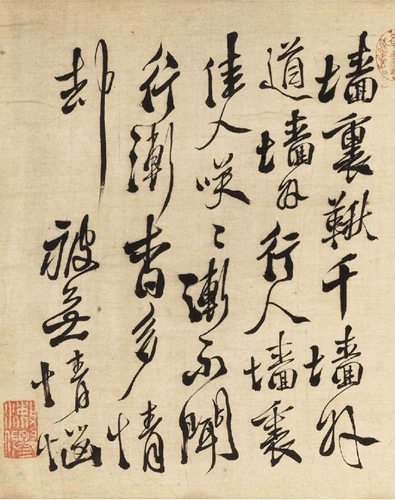 墻裏鞦千墻外
道墻外行人墻裏
佳人咲〻漸不聞
行漸杳多情
却被無情惱